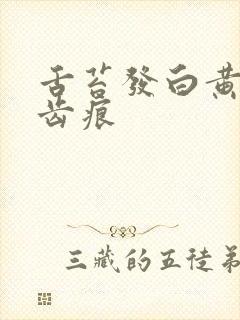 舌苔發白黄
齿痕
三藏的五徒弟